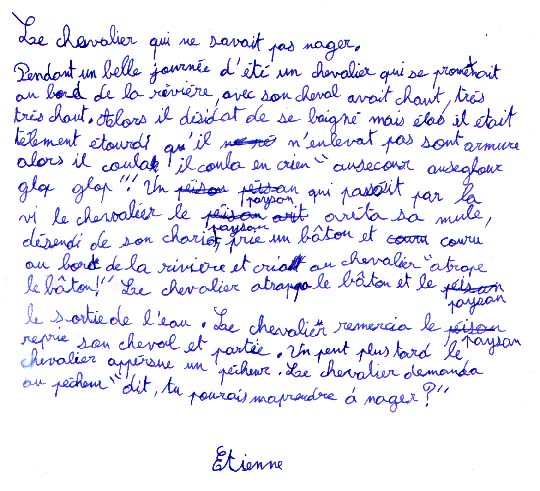 Le chevalier qui ne savait pas nager.
Pendant un belle journée d'été un chevalier qui se prometait
au bord de la rivière, avec son cheval avait chaut, très
très chaut. Alors il désidat de se baigné mais il était
tèlement etourdi qu'il n'enlevat pas sont armure
alors il coula il coula en crien "ausecour auseglour
glop glop"!! Un paysan qui passait par la
vi le chevalier le paysan arita sa mule,
désendi de son chariot, prie un bâton et couru
au bord de la rivière et cria au chevalier "atrape
le bâton!" Le chevalier atrapa le bâton et le paysan
le sortie de l'eau. Le chevalier remercia le paysan
reprie son cheval et partie. Un peut plus tard le
chevalier appersue un pêcheur. Le chevalier demanda
au pêcheur "dit, tu pourais maprendre à nager?"
Etienne